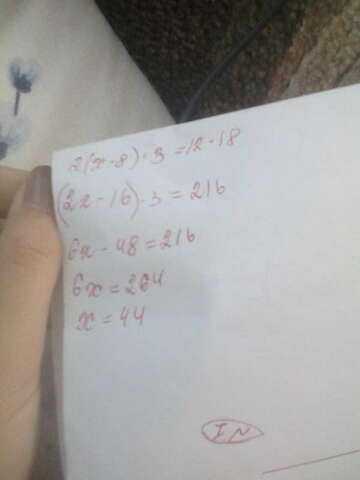 2(x-8)·3=12·18
(2x-16)·3=216
6x-48=216
6x=264
x=44
IN